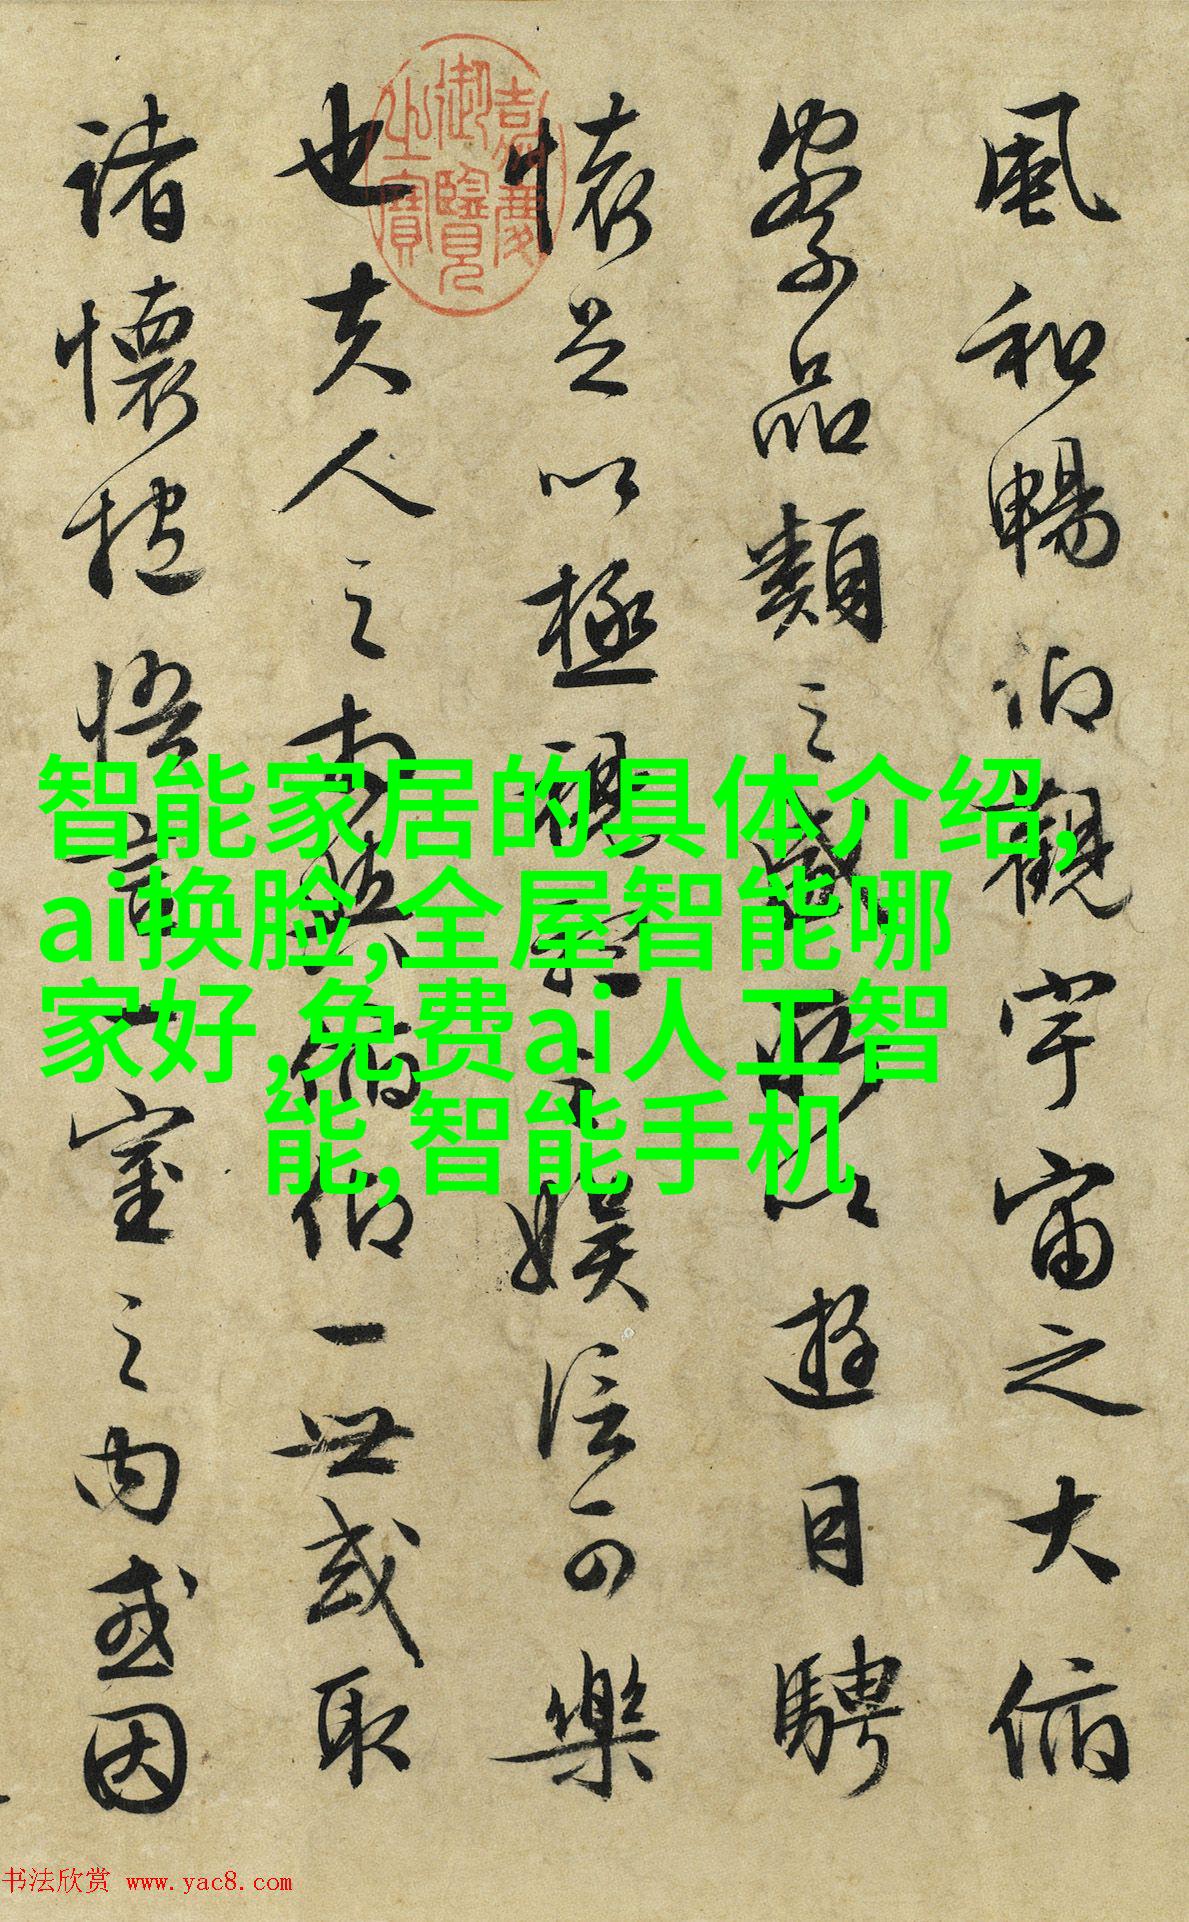 風和暢仰觀宇宙之大俯
察品類之盛所以遊目騁
懷足以極視聽之娛信可樂
也夫人之相與俯仰一世或取
諸懷抱悟言一室之內或因
嘉慶
御覽
之寶
智能家居的具体介绍,
ai换脸,全屋智能哪
家好,免费ai人工智
能,智能手机
书法欣赏 www.yac8.com